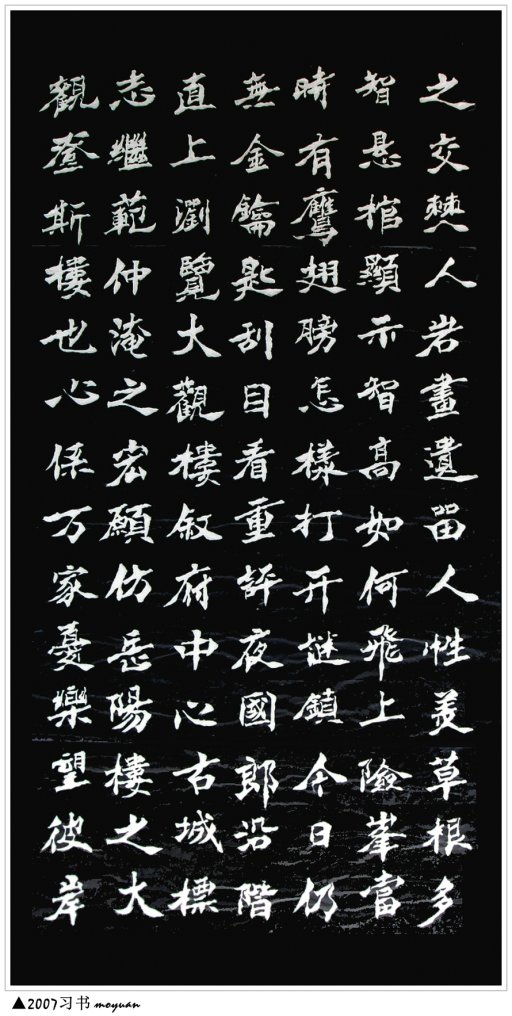 之交僰人岩畫遺畄人性美草根多
智悬棺顯示智高如何飛上險峯當
時有鷹翅膀怎樣打开謎鎖今日仍
無金鑰匙刮目看重評夜國郎沿階
直上瀏覽大觀樓敘府中心古城標
志繼範仲淹之宏願仿岳陽樓之大
觀登斯樓也心係万家憂樂望彼岸
▲2007习书 moyuan